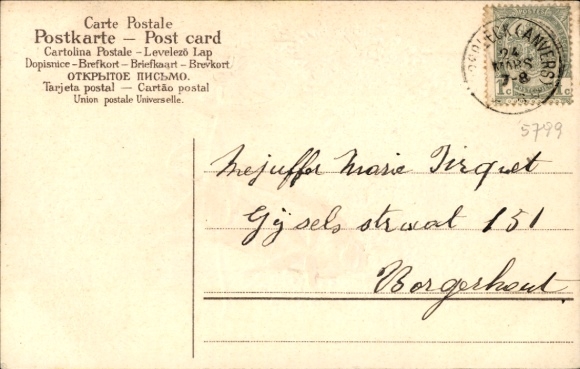 Carte Postale
Postkarte — Post card
Cartolina Postale - Levelező Lap
Dopisnice - Brefkort - Briefkaart - Brevkort
ОТКРЫТОЕ ПИСЬМО.
Tarjeta postal — Cartão postal
Union postale Universelle.
(ANVERS)
24
MARS
7-8
1c 1c
5799
Mejuffr Marie Tirquet
Gijselsstraat 151
Borgerhout